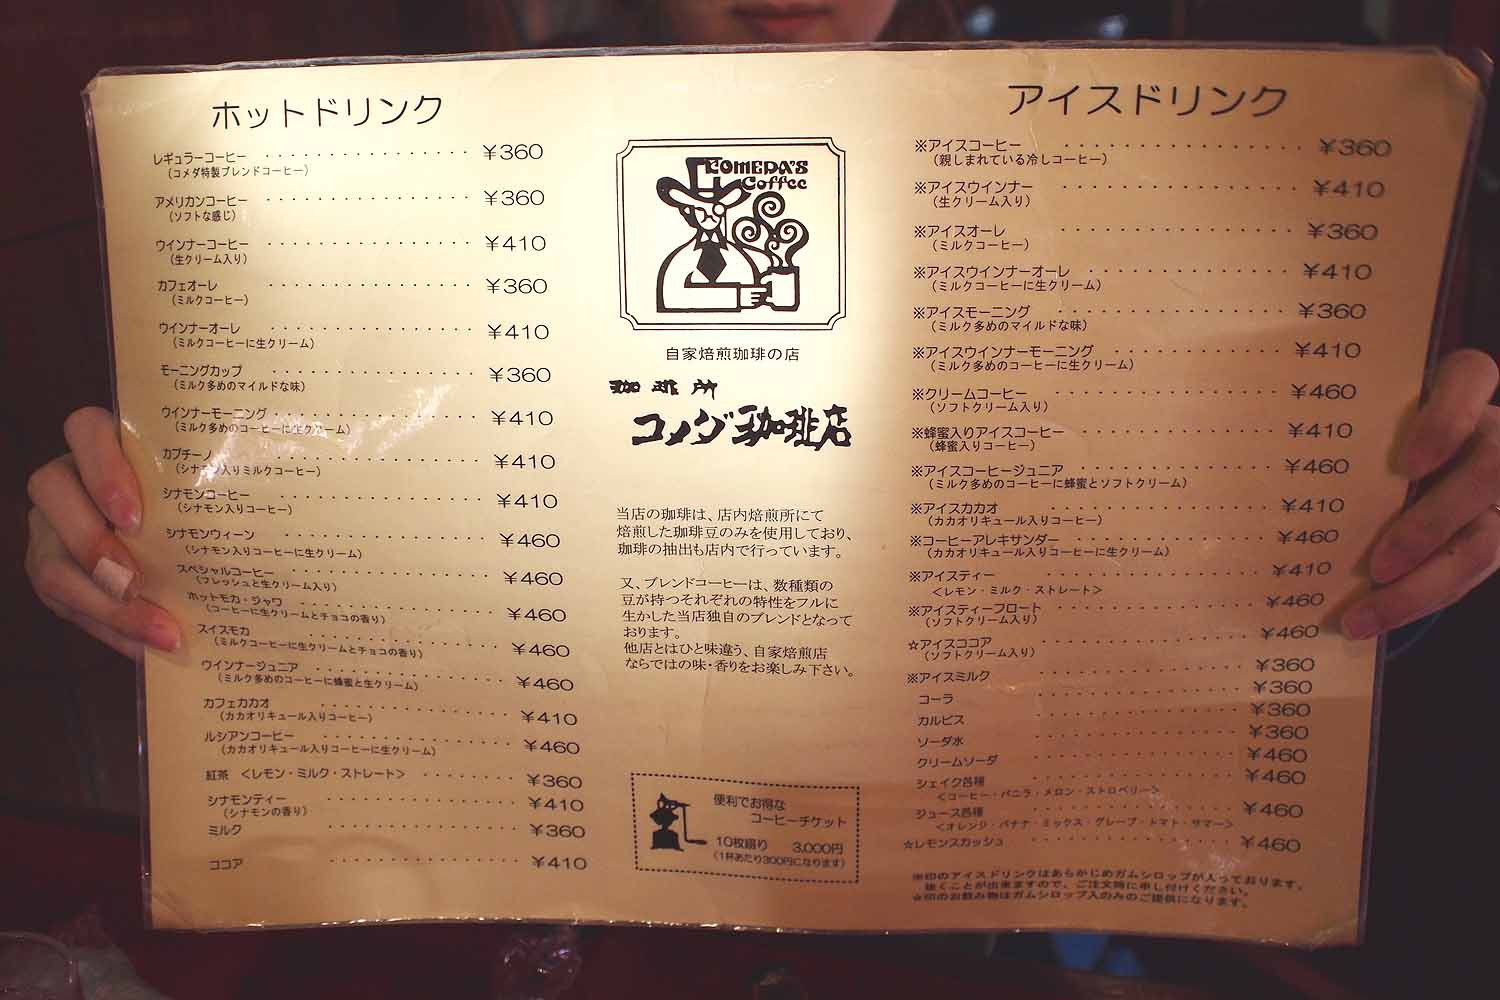 ホットドリンク
レギュラーコーヒー ・・・・・・・・・・・・・・・・ ¥360
（コメダ特製ブレンドコーヒー）
アメリカンコーヒー ・・・・・・・・・・・・・・・・ ¥360
（ソフトな感じ）
ウインナーコーヒー ・・・・・・・・・・・・・・・・ ¥410
（生クリーム入り）
カフェオーレ ・・・・・・・・・・・・・・・・ ¥360
（ミルクコーヒー）
ウインナーオーレ ・・・・・・・・・・・・・・・・ ¥410
（ミルクコーヒーに生クリーム）
モーニングカップ ・・・・・・・・・・・・・・・・ ¥360
（ミルク多めのマイルドな味）
ウインナーモーニング ・・・・・・・・・・・・・・・・ ¥410
（ミルク多めのコーヒーに生クリーム）
カプチーノ ・・・・・・・・・・・・・・・・ ¥410
（シナモン入りミルクコーヒー）
シナモンコーヒー ・・・・・・・・・・・・・・・・ ¥410
（シナモン入りコーヒー）
シナモンウィーン ・・・・・・・・・・・・・・・・ ¥460
（シナモン入りコーヒーに生クリーム）
スペシャルコーヒー ・・・・・・・・・・・・・・・・ ¥460
（フレッシュと生クリーム入り）
ホットモカ・ジャワ ・・・・・・・・・・・・・・・・ ¥460
（コーヒーに生クリームとチョコの香り）
スイスモカ ・・・・・・・・・・・・・・・・ ¥460
（ミルクコーヒーに生クリームとチョコの香り）
ウインナージュニア ・・・・・・・・・・・・・・・・ ¥460
（ミルク多めのコーヒーに蜂蜜と生クリーム）
カフェカカオ ・・・・・・・・・・・・・・・・ ¥410
（カカオリキュール入りコーヒー）
ルシアンコーヒー ・・・・・・・・・・・・・・・・ ¥460
（カカオリキュール入りコーヒーに生クリーム）
紅茶 ＜レモン・ミルク・ストレート＞ ・・・・・・・・ ¥360
シナモンティー ・・・・・・・・・・・・・・・・ ¥410
（シナモンの香り）
ミルク ・・・・・・・・・・・・・・・・ ¥360
ココア ・・・・・・・・・・・・・・・・ ¥410
KOMEDA'S
Coffee
自家焙煎珈琲の店
珈琲所
コメダ珈琲店
当店の珈琲は、店内焙煎所にて
焙煎した珈琲豆のみを使用しており、
珈琲の抽出も店内で行っています。
又、ブレンドコーヒーは、数種類の
豆が持つそれぞれの特性をフルに
生かした当店独自のブレンドとなって
おります。
他店とはひと味違う、自家焙煎店
ならではの味・香りをお楽しみ下さい。
便利でお得な
コーヒーチケット
10枚綴り 3,000円
（1杯あたり300円になります）
アイスドリンク
※アイスコーヒー ・・・・・・・・・・・・・・・・ ¥360
（親しまれている冷しコーヒー）
※アイスウインナー ・・・・・・・・・・・・・・・・ ¥410
（生クリーム入り）
※アイスオーレ ・・・・・・・・・・・・・・・・ ¥360
（ミルクコーヒー）
※アイスウインナーオーレ ・・・・・・・・・・・・・・ ¥410
（ミルクコーヒーに生クリーム）
※アイスモーニング ・・・・・・・・・・・・・・・・ ¥360
（ミルク多めのマイルドな味）
※アイスウインナーモーニング ・・・・・・・・・・・・ ¥410
（ミルク多めのコーヒーに生クリーム）
※クリームコーヒー ・・・・・・・・・・・・・・・・ ¥460
（ソフトクリーム入り）
※蜂蜜入りアイスコーヒー ・・・・・・・・・・・・・・ ¥410
（蜂蜜入りコーヒー）
※アイスコーヒージュニア ・・・・・・・・・・・・・・ ¥460
（ミルク多めのコーヒーに蜂蜜とソフトクリーム）
※アイスカカオ ・・・・・・・・・・・・・・・・ ¥410
（カカオリキュール入りコーヒー）
※コーヒーアレキサンダー ・・・・・・・・・・・・・・ ¥460
（カカオリキュール入りコーヒーに生クリーム）
※アイスティー ・・・・・・・・・・・・・・・・ ¥410
＜レモン・ミルク・ストレート＞
※アイスティーフロート ・・・・・・・・・・・・・・ ¥460
（ソフトクリーム入り）
☆アイスココア ・・・・・・・・・・・・・・・・ ¥460
（ソフトクリーム入り）
※アイスミルク ・・・・・・・・・・・・・・・・ ¥360
コーラ ・・・・・・・・・・・・・・・・ ¥360
カルピス ・・・・・・・・・・・・・・・・ ¥360
ソーダ水 ・・・・・・・・・・・・・・・・ ¥360
クリームソーダ ・・・・・・・・・・・・・・・・ ¥460
シェイク各種 ・・・・・・・・・・・・・・・・ ¥460
＜コーヒー・バニラ・メロン・ストロベリー＞
ジュース各種 ・・・・・・・・・・・・・・・・ ¥460
＜オレンジ・バナナ・ミックス・グレープ・トマト・サマー＞
☆レモンスカッシュ ・・・・・・・・・・・・・・・・ ¥460
※印のアイスドリンクはあらかじめガムシロップが入っております。
抜くことが出来ますので、ご注文時に申し付けください。
☆印のお飲み物はガムシロップ入のみのご提供になります。